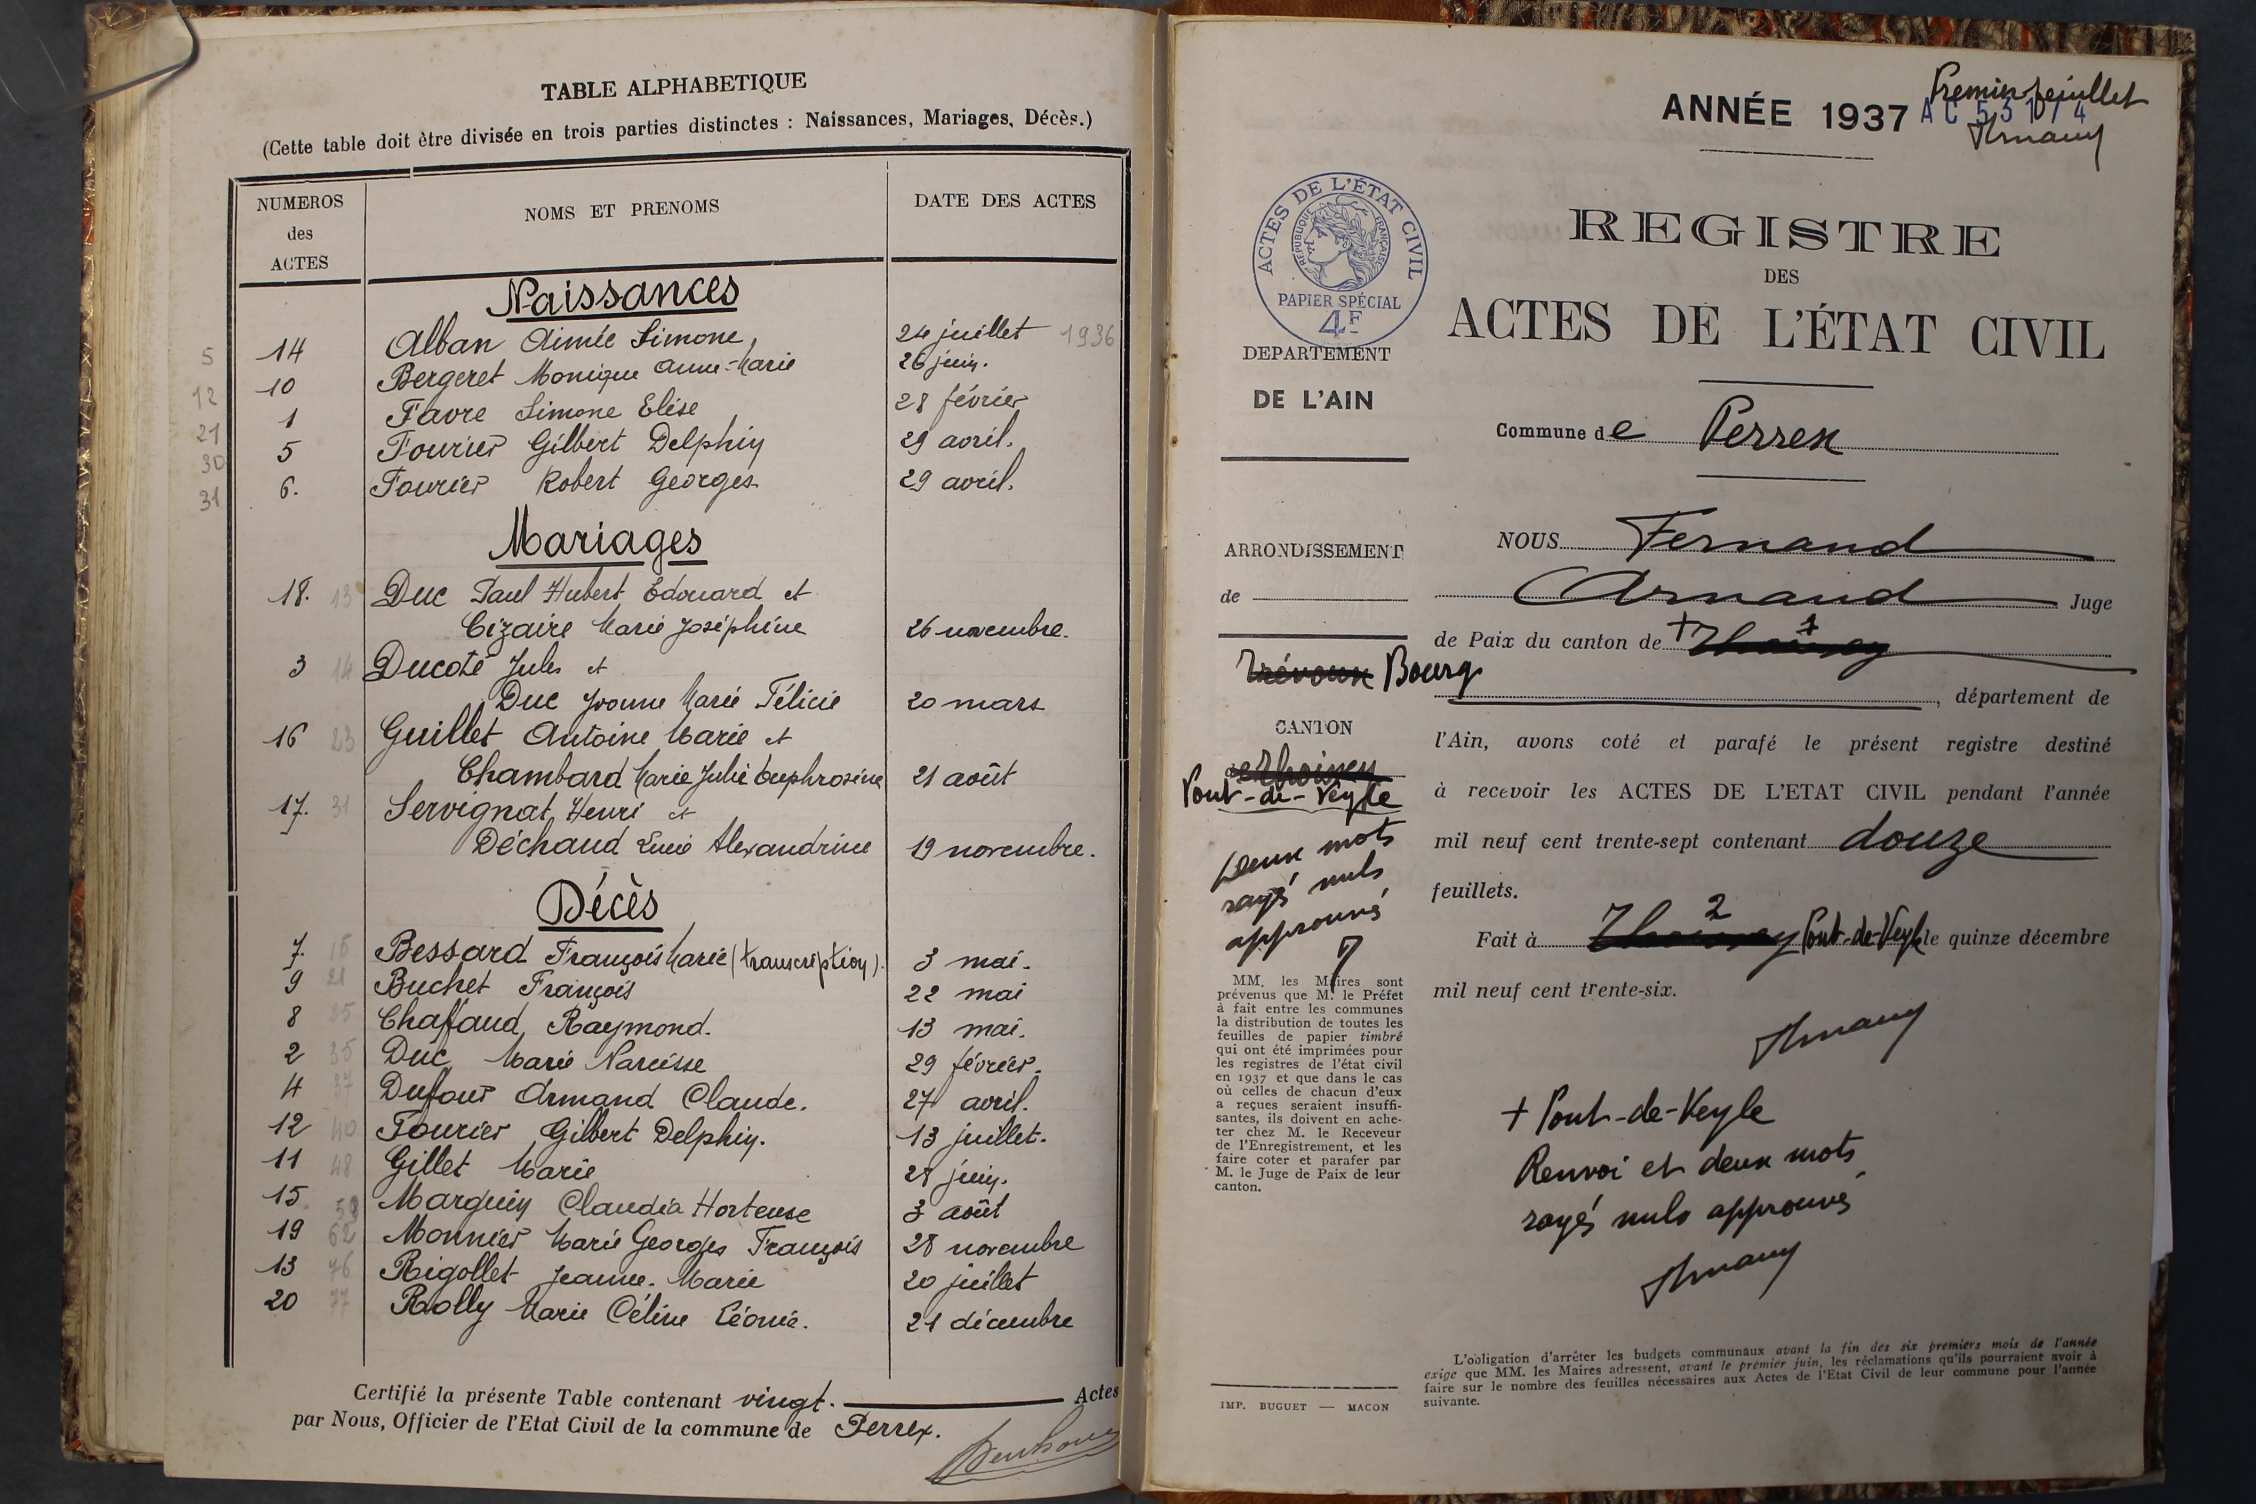 TABLE ALPHABETIQUE
(Cette table doit être divisée en trois parties distinctes : Naissances, Mariages, Décès.)
NUMEROS des ACTES NOMS ET PRENOMS DATE DES ACTES
Naissances
5 14 Alban Aimée Simone 24 juillet 1936
12 10 Bergeret Monique Anne-Marie 26 juin.
21 1 Favre Simone Elise 28 février
30 5 Fourier Gilbert Delphin 29 avril.
31 6. Fourier Robert Georges 29 avril.
Mariages
18. 13 Duc Paul Hubert Edouard et
Cizaire Marie Joséphine 26 novembre.
3 14 Ducoté Jules et
Duc Yvonne Marie Félicie 20 mars
16 23 Guillet Antoine Marie et
Chambard Marie Julie Euphrosine 21 août
17. 31 Servignat Henri et
Déchaud Lucie Alexandrine 19 novembre.
Décès
7. 15 Bessard François Marie (transcription). 3 mai.
9 21 Buchet François 22 mai
8 25 Chaffaud Raymond. 13 mai.
2 35 Duc Marie Narcisse 29 février.
4 37 Dufour Armand Claude. 27 avril.
12 40 Fourier Gilbert Delphin. 13 juillet.
11 48 Gillet Marie 28 juin.
15. 58 Marguin Claudia Hortense 3 août
19 62 Monnier Marie Georges François 28 novembre
13 76 Rigollet Jeanne-Marie 20 juillet
20 77 Rolly Marie Céline Léonie. 21 décembre
Certifié la présente Table contenant vingt. Actes
par Nous, Officier de l'Etat Civil de la commune de Perrex.
Premier feuillet
ANNÉE 1937 AC 531 1/4
ACTES DE L'ÉTAT CIVIL
REPUBLIQUE FRANÇAISE
PAPIER SPÉCIAL
4F
DEPARTEMENT
DE L'AIN
ARRONDISSEMENT
de
Trévoux Bourg
CANTON
de Thoissey
Pont-de-Veyle
Deux mots
rayés nuls
approuvés
MM. les Maires sont
prévenus que M. le Préfet
à fait entre les communes
la distribution de toutes les
feuilles de papier timbré
qui ont été imprimées pour
les registres de l'état civil
en 1937 et que dans le cas
où celles de chacun d'eux
a reçues seraient insuffi-
santes, ils doivent en ache-
ter chez M. le Receveur
de l'Enregistrement, et les
faire coter et parafer par
M. le Juge de Paix de leur
canton.
IMP. BUGUET — MACON
REGISTRE
DES
ACTES DE L'ÉTAT CIVIL
Commune de Perrex
NOUS Fernand
Arnaud Juge
de Paix du canton de + Thoissey 1
, département de
l'Ain, avons coté et parafé le présent registre destiné
à recevoir les ACTES DE L'ETAT CIVIL pendant l'année
mil neuf cent trente-sept contenant douze
feuillets.
Fait à Thoissey 2 Pont-de-Veyle le quinze décembre
mil neuf cent trente-six.
+ Pont-de-Veyle
Renvoi et deux mots
rayés nuls approuvés
L'obligation d'arrêter les budgets communaux avant la fin des six premiers mois de l'année
exige que MM. les Maires adressent, avant le premier juin, les réclamations qu'ils pourraient avoir à
faire sur le nombre des feuilles nécessaires aux Actes de l'Etat Civil de leur commune pour l'année
suivante.